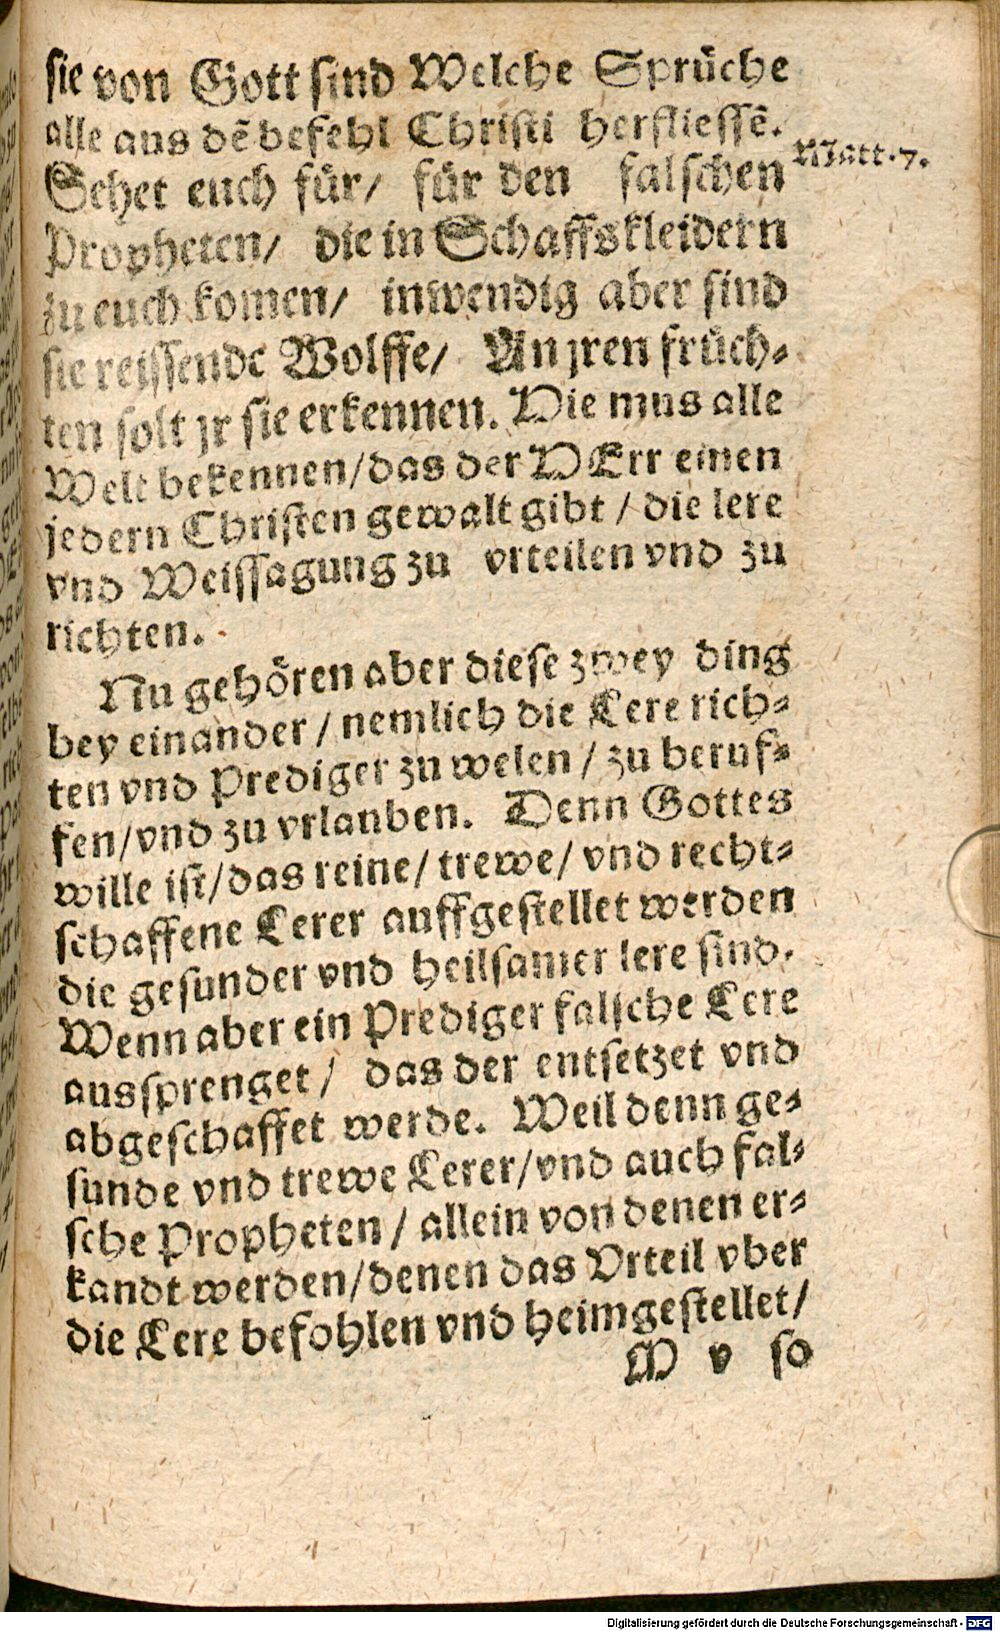 sie von Gott sind Welche Sprüche
alle aus dē befehl Christi herfliessē.
Matt. 7.
Sehet euch für/ für den falschen
Propheten/ die in Schaffskleidern
zu euch komen/ inwendig aber sind
sie reissende Wolffe/ An jren früch⸗
ten solt jr sie erkennen. Hie mus alle
Welt bekennen/das der HErr einen
jedern Christen gewalt gibt / die lere
vnd Weissagung zu vrteilen vnd zu
richten.
Nu gehören aber diese zwey ding
bey einander / nemlich die Lere rich⸗
ten vnd Prediger zu welen / zu beruf⸗
fen/vnd zu vrlauben. Denn Gottes
wille ist/das reine/ trewe/ vnd recht⸗
schaffene Lerer auffgestellet werden
die gesunder vnd heilsamer lere sind.
Wenn aber ein Prediger falsche Lere
aussprenget / das der entsetzet vnd
abgeschaffet werde. Weil denn ge⸗
sunde vnd trewe Lerer/vnd auch fal⸗
sche Propheten / allein von denen er⸗
kandt werden/denen das Vrteil vber
die Lere befohlen vnd heimgestellet/
M v so
Digitalisierung gefördert durch die Deutsche Forschungsgemeinschaft - DFG